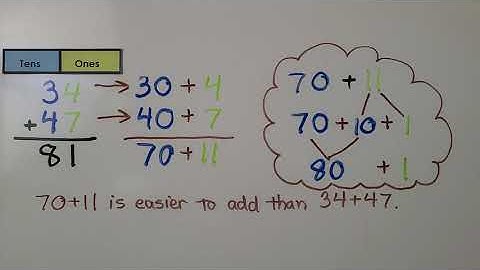 Tens Ones
34 → 30 + 4 70 + 11
+ 47 → 40 + 7 70 + 10 + 1
81 70 + 11 80 + 1
70+11 is easier to add than 34+47.